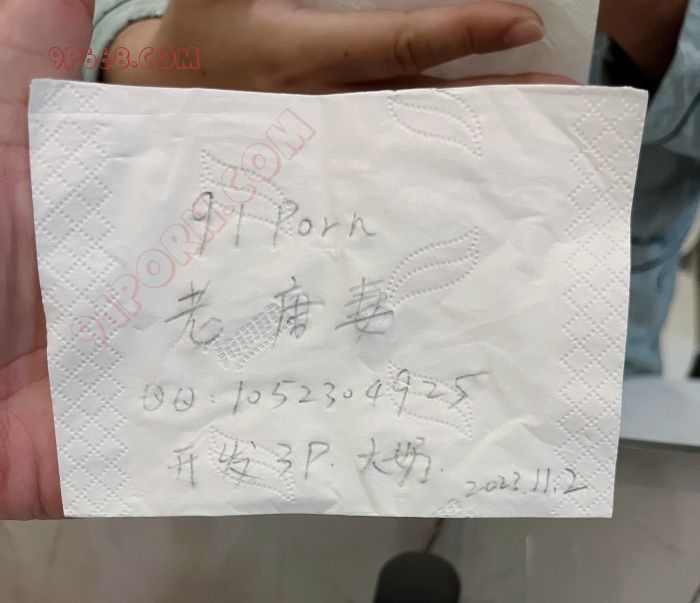 9P668.COM
91PORN.COM
91 Porn
老 唐 妻
QQ:1052304925
开发 3P. 大奶.
2023.11.2